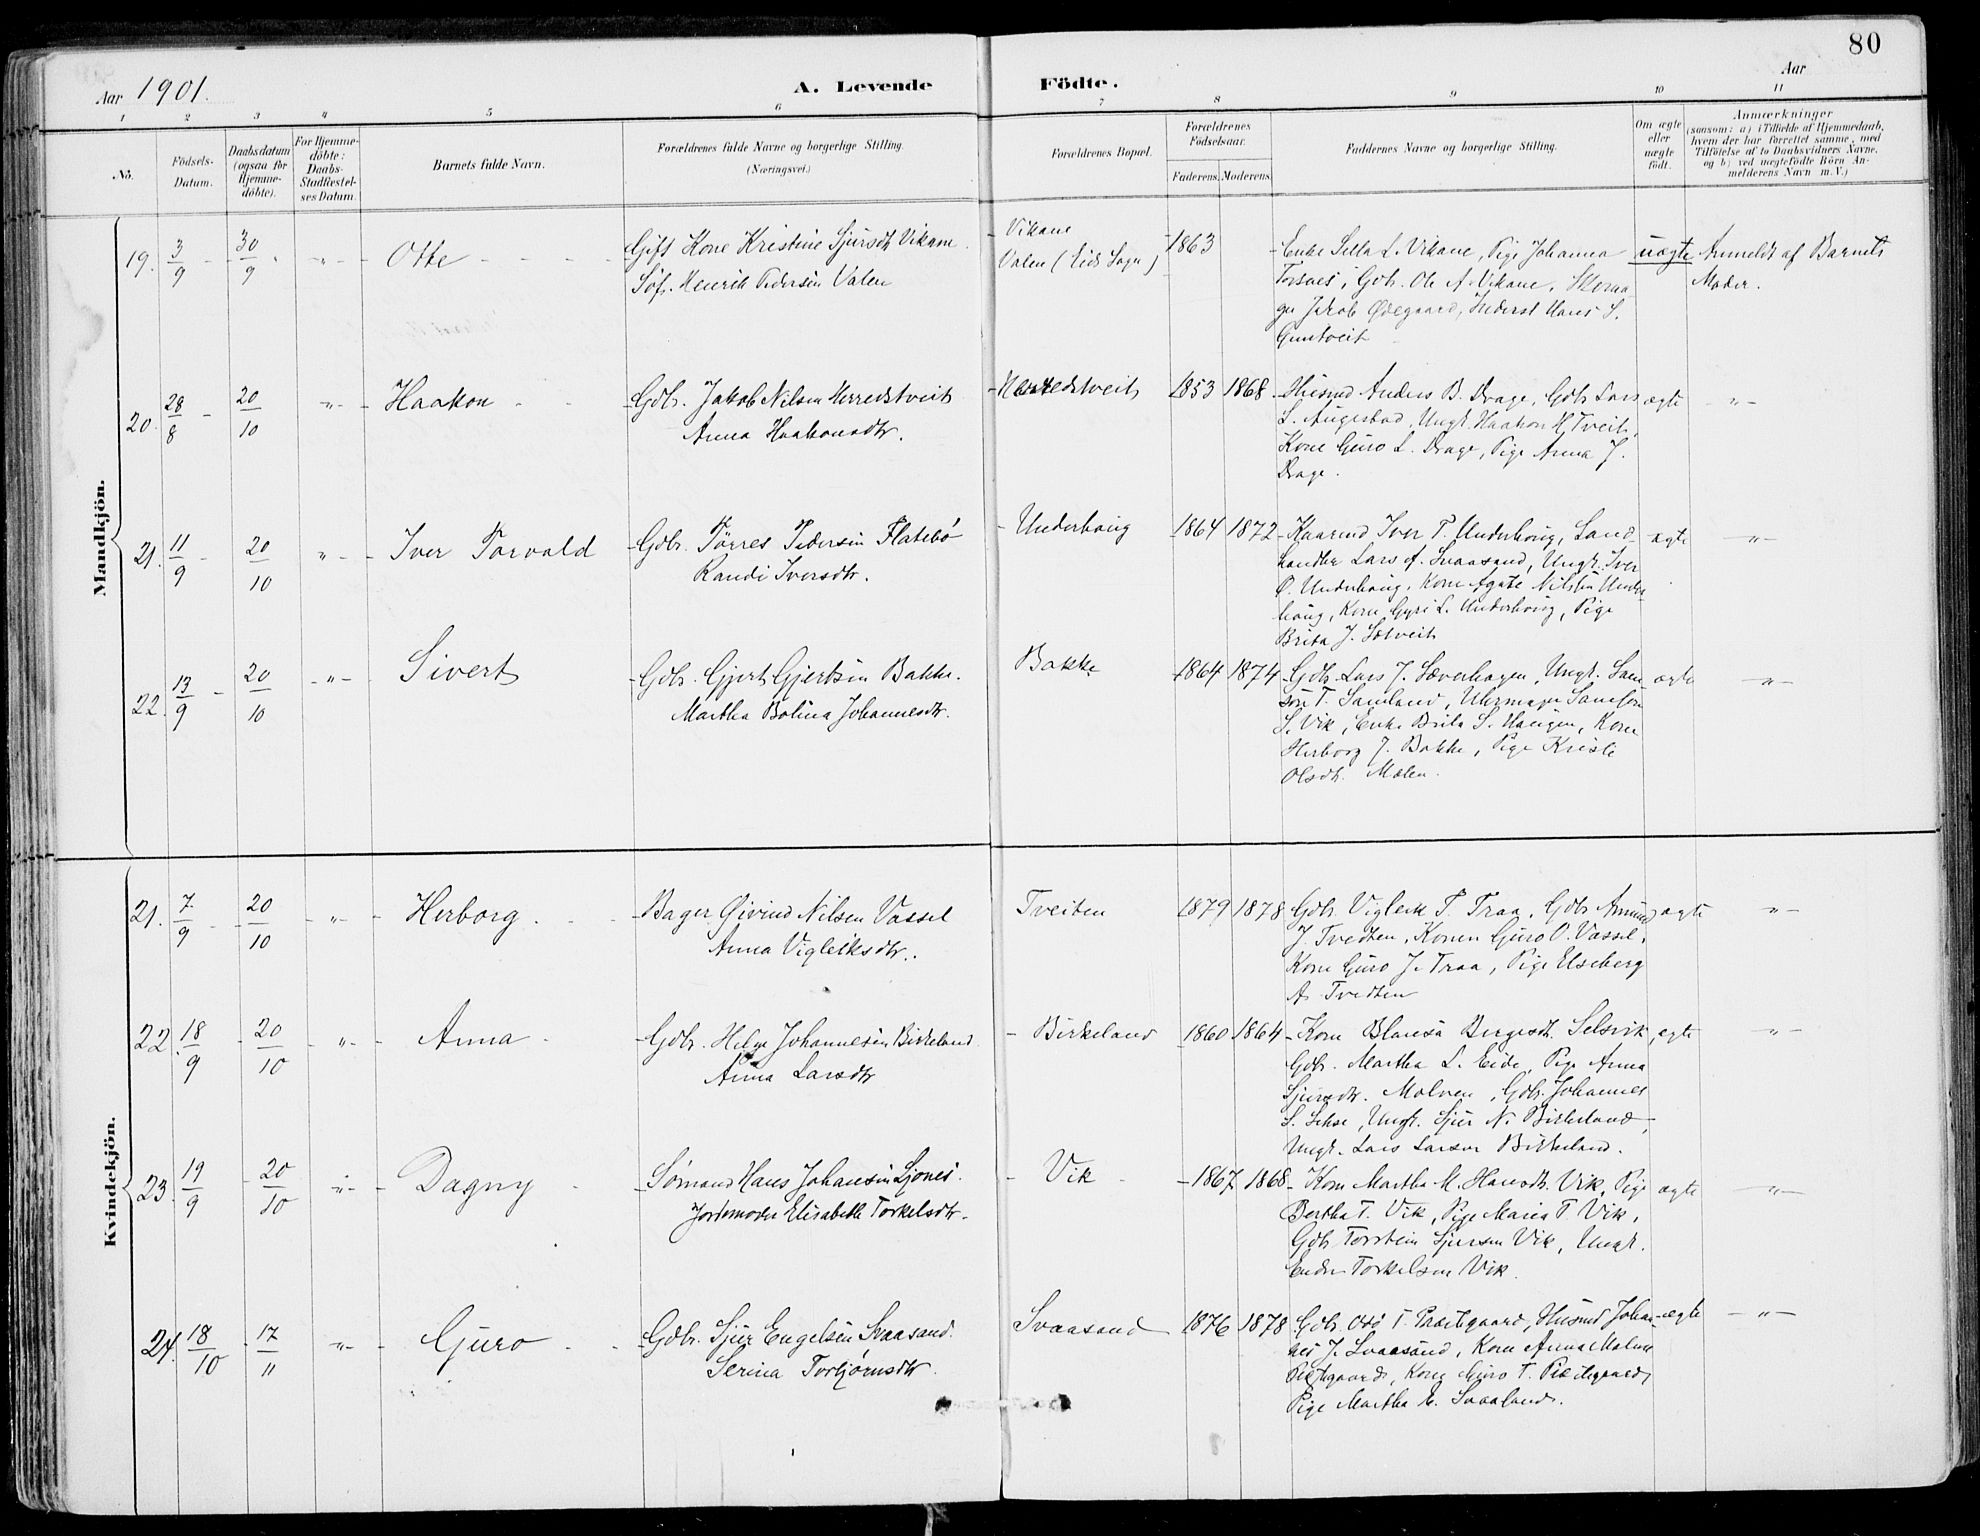 80
Aar 1901.
A. Levende Födte.
Aar
1 2 3 4 5 6 7 8 9 10 11
No.
Födsels-Datum.
Daabsdatum (ogsaa for Hjemme-döbte).
For Hjemme-döbte: Daabs-Stadfæstel-ses Datum.
Barnets fulde Navn.
Forældrenes fulde Navne og borgerlige Stilling.
(Næringsvei.)
Forældrenes Bopæl.
Forældrenes Födselsaar.
Faderens. Moderens.
Faddernes Navne og borgerlige Stilling.
Om ægte eller uægte födt.
Anmærkninger
(saasom: a) i Tilfælde af Hjemmedaab, hvem der har forrettet samme, med Tilföielse af to Daabsvidners Navne, og b) ved uægtefödte Börn An-melderens Navn m. V.)
Mandkjön.
19. 3/9 - 30/9 " Otte
Gift Kone Kristine Sjursdt Vikane.
Søfr. Henrik Pedersen Valen
Vikane
Valen (Eids Sogn)
1863
Enke Sella L. Vikane, Pige Johanna
Torsnes, Gdb. Ole A. Vikane,
Jakob Ødegaard, Inderst Hans S.
uægte
Anmeldt af Barnets
Moder.
20. 28/8 - 20/10 " Haakon
Gdb. Jakob Nilsen Herredstveit
Anna Haakonsdtr.
Herredstveit 1853 1868
Husmd Anders B. Drage, Gdb Lars
S. Augestad, Ungk. Haakon H. Tveit,
Kone Guro L. Drage, Pige Anna J.
Drage.
ægte "
21. 11/9 - 20/10 " Iver Torvald
Gdb. Tørres Pedersen Flatebø
Randi Iversdtr.
Underhaug 1864 1872
Kaarmd Iver T. Underhaug, Land
handler Lars A. Svaasand, Ungk. Iver
O. Underhaug, Kone Agate Nilsen Under
haug, Kone Gyri L. Underhaug, Pige
Brita J. Sætveit
ægte "
22. 13/9 - 20/10 " Sivert
Gdb. Gjert Gjertsen Bakke.
Martha Bolina Johannesdtr.
Bakke 1864 1874
Gdb. Lars J. Sæverhagen, Ungk. Sam
son T. Samland, Uhrmager Samson
S. Vik, Enke Brita S. Haugen, Kone
Herborg J. Bakke, Pige Kristi
Olsdtr. Mælen.
ægte "
Kvindekjön.
21. 7/9 - 20/10 " Herborg
Bager Øivind Nilsen Vassel
Anna Vigleiksdtr.
Tveiten 1879 1878
Gdb. Vigleik T. Traa, Gdb. Amund
J. Tvedten, Konen Guro O. Vassel,
Kone Guro J. Traa, Pige Elseberg
A. Tvedten
ægte "
22. 18/9 - 20/10 " Anna
Gdb. Helge Johannesen Birkeland
Anna Larsdtr
Birkeland 1860 1864
Kone Blansa Børgesdt. Selsvik,
Gdb. Martha L. Eide, Pige Anna
Sjursdtr. Molven, Gdb. Johannes
S. Sekse, Ungk. Sjur N. Birkeland,
Ungk. Lars Larsen Birkeland.
ægte "
23. 19/9 - 20/10 " Dagny
Sømand Hans Johansen Ljones.
Jordemoder Elisabeth Torkelsdtr.
Vik 1867 1868
Kone Martha M. Hansdt. Vik, Pige
Bertha T. Vik, Pige Maria T. Vik,
Gdb. Torstein Sjursen Vik, Ungk.
Endre Torkelsen Vik.
ægte "
24. 18/10 - 17/11 " Guro
Gdb. Sjur Engelsen Svaasand.
Serina Torbjørnsdtr
Svaasand 1876 1878
Gdb. T. Prestgaard, Husmd Johan
nes J. Svaasand, Kone Anna Malene
Prestgaard, Kone Guro T. Prestgaard,
Pige Martha E. Svaasand.
ægte "